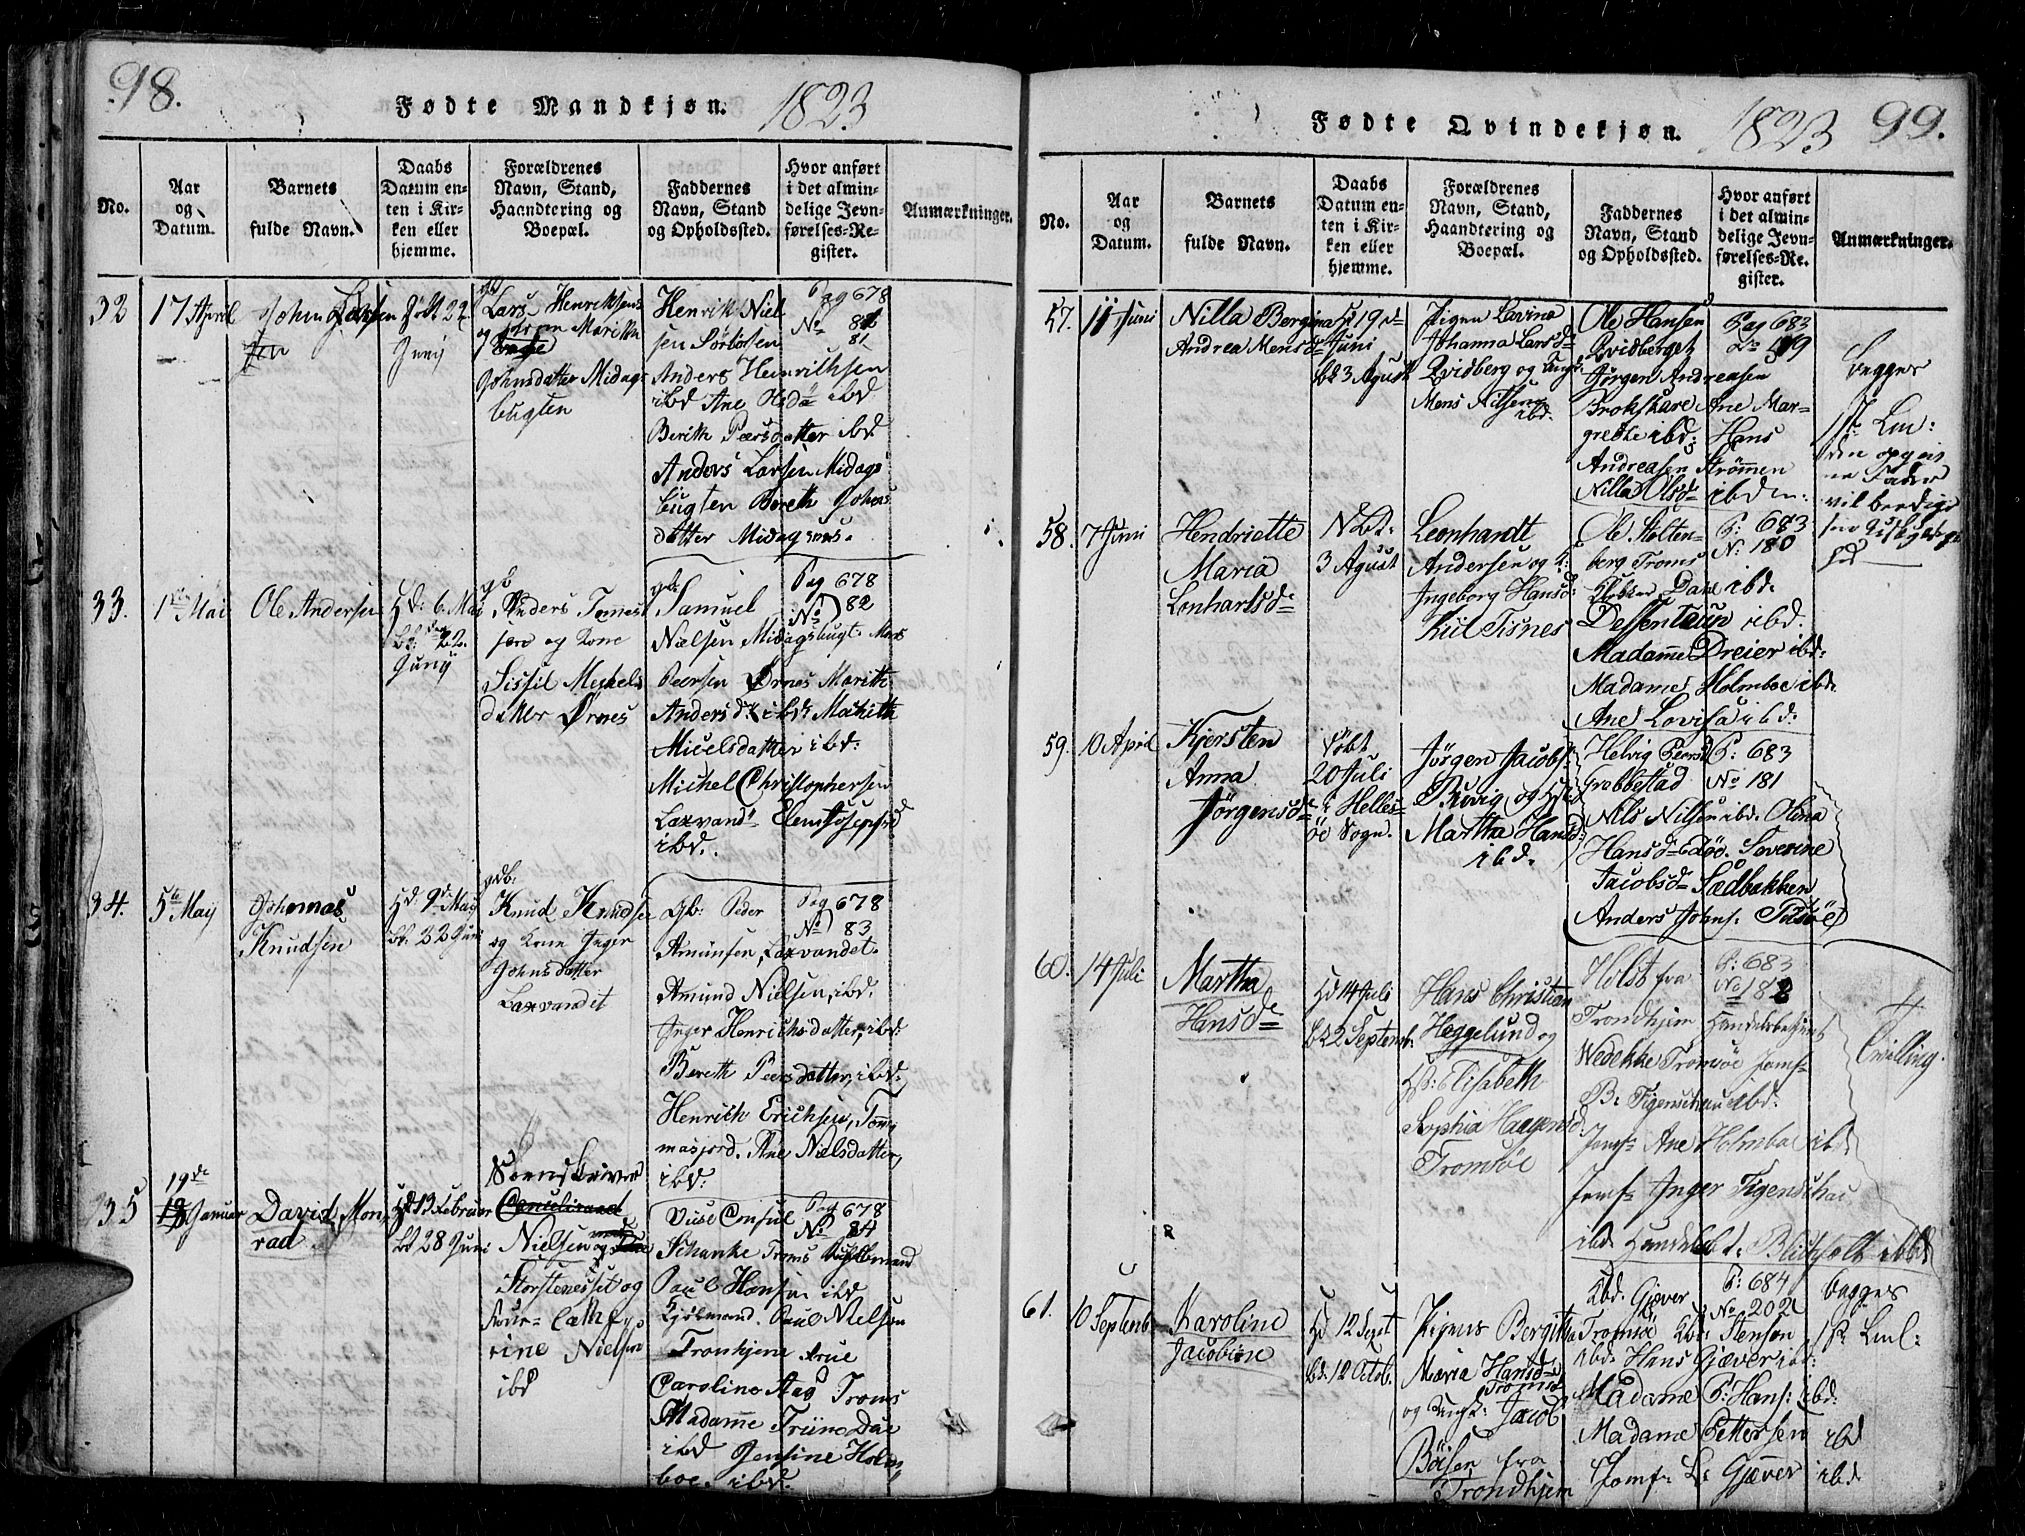 98.
Fødte Mandkjøn.
1823
No.
Aar
og
Datum.
Barnets
fulde Navn.
Daabs
Datum en-
ten i Kir-
ken eller
hjemme.
Forældrenes
Navn, Stand,
Haandtering og
Boepæl.
Faddernes
Navn, Stand
og Opholdssted.
Hvor anført
i det almin-
delige Jevn-
førelses-Re-
gister.
Anmærkninger.
32
17 April
Johan Larsen
Døbt 22
Junij
Lars Henriksens
og
Marith
Johnsdatter Midag-
bugten
Henrik Niel
sen Sørbotten
Anders Heinrichsen
ibd Ane Olsd ibd
Berith Pærsdatter ibd
Anders Larsen Midags
bugten Bereth Johns
datter Midagsnæs.
Pag 678
No 81
33.
1 Mai
Ole Andersen
Hd: 6. Mai
Bd: 22.
Junij
Anders Tomes
sen og Kone
Sissil Mickels
datter Ørnes
gb. Samuel
Nielsen Midagsbugt. Mons
Peersen Ørnes Marith
Andersd: ibd: Marith
Micelsdatter ibd:
Michel Christophersen
Laxvand Elen Josepsd
ibd.
Pag 678
No 82
34.
5te Maij
Johannas
Knudsen
Hd. 9d Maij
Bd. 22 Juni
gdb:
Knud Knudsen
og Kone Inger
Johnsdatter
Laxvandet
gb: Peder
Amundsen, Laxvandet.
Amund Nielsen, ibd.
Inger Henrichsdatter, ibd
Bereth Peersdatter, ibd.
Henrich Erichsen, Tom
masjord. Ane Nielsdatter,
ibd.
Pag 678
No 83
35
19de
Januar
David Mon-
rad
Hd 13 Februar
bd 28 Juni
Sorenskriver
Nielsen
Storstenesset og
Frue Cath
rine Nielsen
ibd
Vise Consul
Schanke Troms
Poul Hansen ibd
Kjøbmand. Paul Nielsen
Tronhjem Frue
Caroline Aas Troms
Madamme Triine Daae
ibd Jensine Holm
boe. ibd.
Pag 678
No 84
99.
Fødte Qvindekjøn.
1823
No.
Aar
og
Datum.
Barnets
fulde Navn.
Daabs
Datum en-
ten i Kir-
ken eller
hjemme.
Forældrenes
Navn, Stand,
Haandtering og
Boepæl.
Faddernes
Navn, Stand
og Opholdssted.
Hvor anført
i det almin-
delige Jevn-
førelses-Re-
gister.
Anmærkninger.
57.
11 Juni
Nilla Bergina
Andrea Mensd
Hd 19 d
Juni
bd 3 Agust
Pigen Lavina
Johanna Larsd
Qvidberg og Ungk
Mens Nilsen
ibd.
Ole Hansen
Qvidberget
Jørgen Andreasen
Brokskare Ane Mar-
grethe ibd: Hans
Andreasen Strømmen
Nilla Olsd ibden:
Pag 683
No 179
begges
1ste Leir:
58.
7 Juni
Hendriette
Maria
Lonhartsd
N bt:
3 Agust
Leonhardt
Andersen og K:
Ingeborg Hansd:
Kiil Tisnes
Ole Stolten-
berg Troms
Klokker Dane ibd.
Dessentaun ibd.
Madamme Dreier ibd.
Madame Holmboe ibd.
Ane Lovisa ibd.
P: 683
N: 180
59.
10 April
Kjersten
Anna
Jørgensd
Døbt
20 Juli
i Helles-
øe Sogn.
Jørgen Jacobs.
Buvig og
Martha Hansd:
ibd.
Helvig Peersd
Grabbestad
Nils Nilsen ibd. Olina
Hansd Edøe. Severine
Jacobsd Sædbakken
Anders Johns. Tusøe
P: 683
No 181
60.
14 Juli
Martha
Hansd
Hd 14 Juli
bd 2 Septemb.
Hans Christian
Heggelund og
Hst: Elisabeth
Sophia Haagensd:
Tromsøe
Holst fra
Trondhjem Handelsbetjent
Wedekke Tromsøe Jomf
B: Figenschau ibd.
Jomf Ane Holmboe ibd
Jomf Inger Figenschau
ibd. Handelsbt. Blichfelt ibd
P: 683
No 182
Tvilling.
61.
10 Septemb
Karoline
Jacobine
Hd 12 Sept
bd. 12 Octob.
Pigens Bergitha
Maria Hansd
Tromsø
og Ungk: Jacob
Böisen fra
Trondhjem
Kbd. Gjæver
Tromsø Kbd: Stenson
ibd. Hans Gjæver ibd:
Madame P: Hans: ibd.
Madame Pettersen ibd
Jomf L: Gjæver ibd
P: 684
No 202
begges
1st Leil: